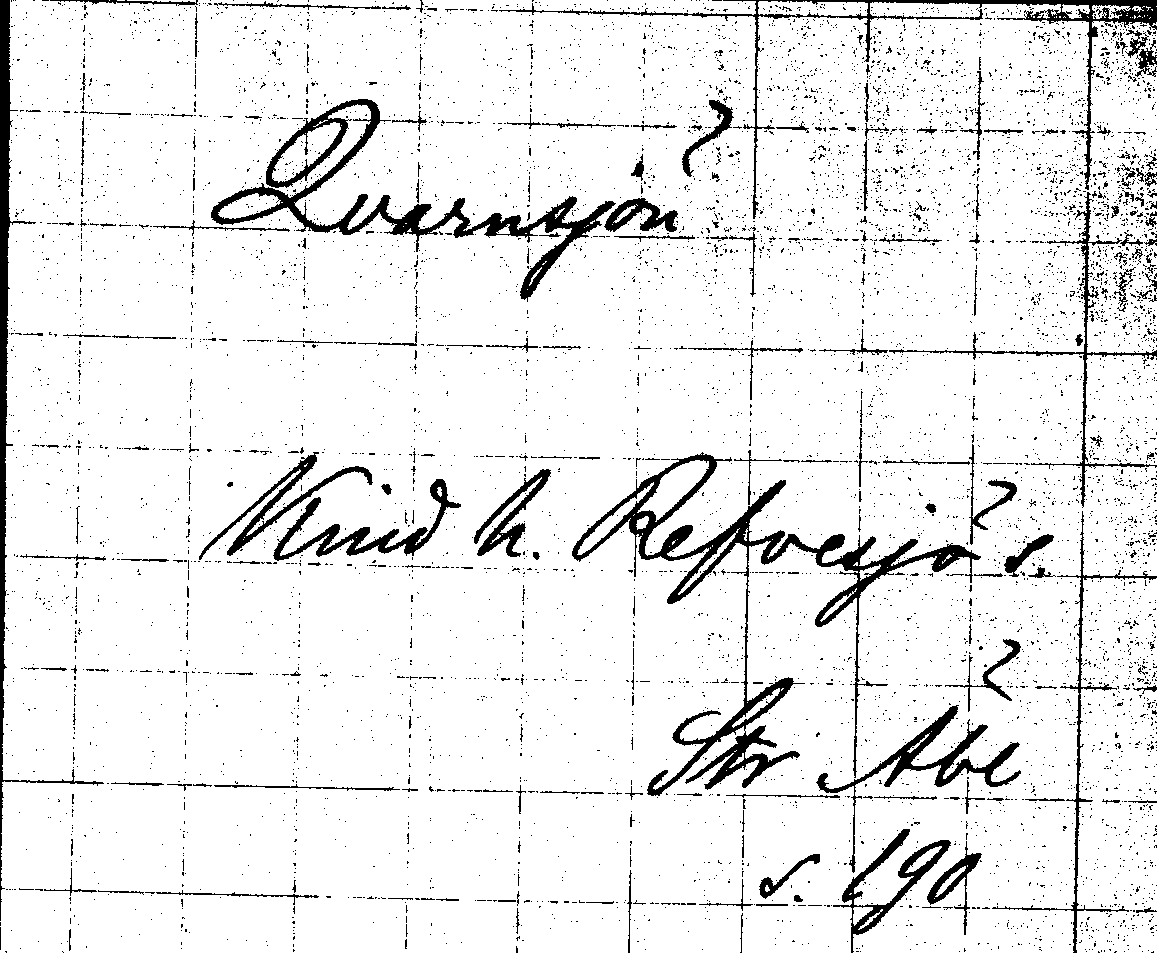 Qvarnsjön
Kind h. Refvesjö s.
Str Åbe
s. 190